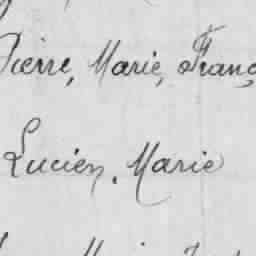 Pierre, Marie, Franç
Lucien, Marie